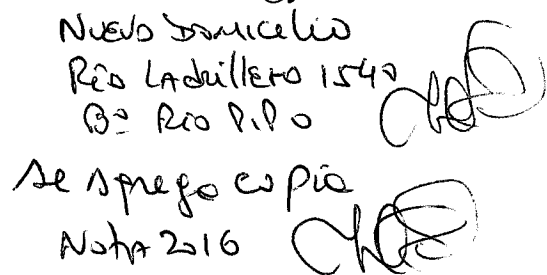 Nuevo Domicilio
Río Ladrillero 1540
Bº Río Pipo
se agrego copia
Nota 2016